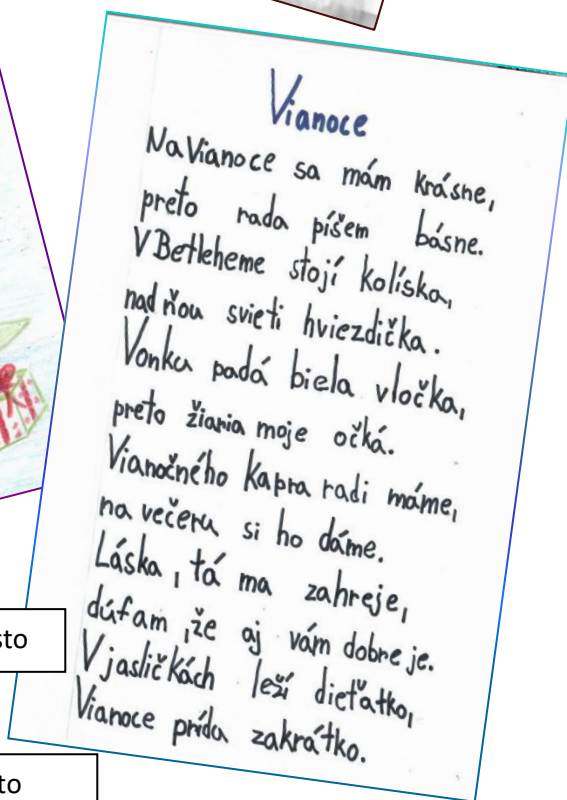 Vianoce
Na Vianoce sa mám krásne,
preto rada píšem básne.
V Betleheme stojí kolíska,
nad ňou svieti hviezdička.
Vonku padá biela vločka,
preto žiaria moje očká.
Vianočného kapra radi máme,
na večeru si ho dáme.
Láska, tá ma zahreje,
dúfam, že aj vám dobre je.
V jasličkách leží dieťatko,
Vianoce prídu zakrátko.